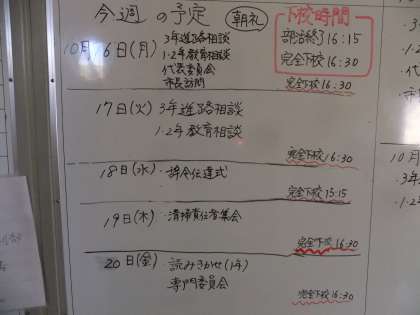 今週の予定 朝礼
下校時間
部活終了 16:15
完全下校 16:30
10月16日(月) 3年進路相談
1・2年教育相談
代表委員会
市長訪問
完全下校 16:30
17日(火) 3年進路相談
1・2年教育相談
完全下校 16:30
18日(水)・辞令伝達式
完全下校 15:15
19日(木)・清掃責任者集会
完全下校 16:30
20日(金)・読みきかせ(1年)
専門委員会
完全下校 16:30
10月
・3年
・1・2